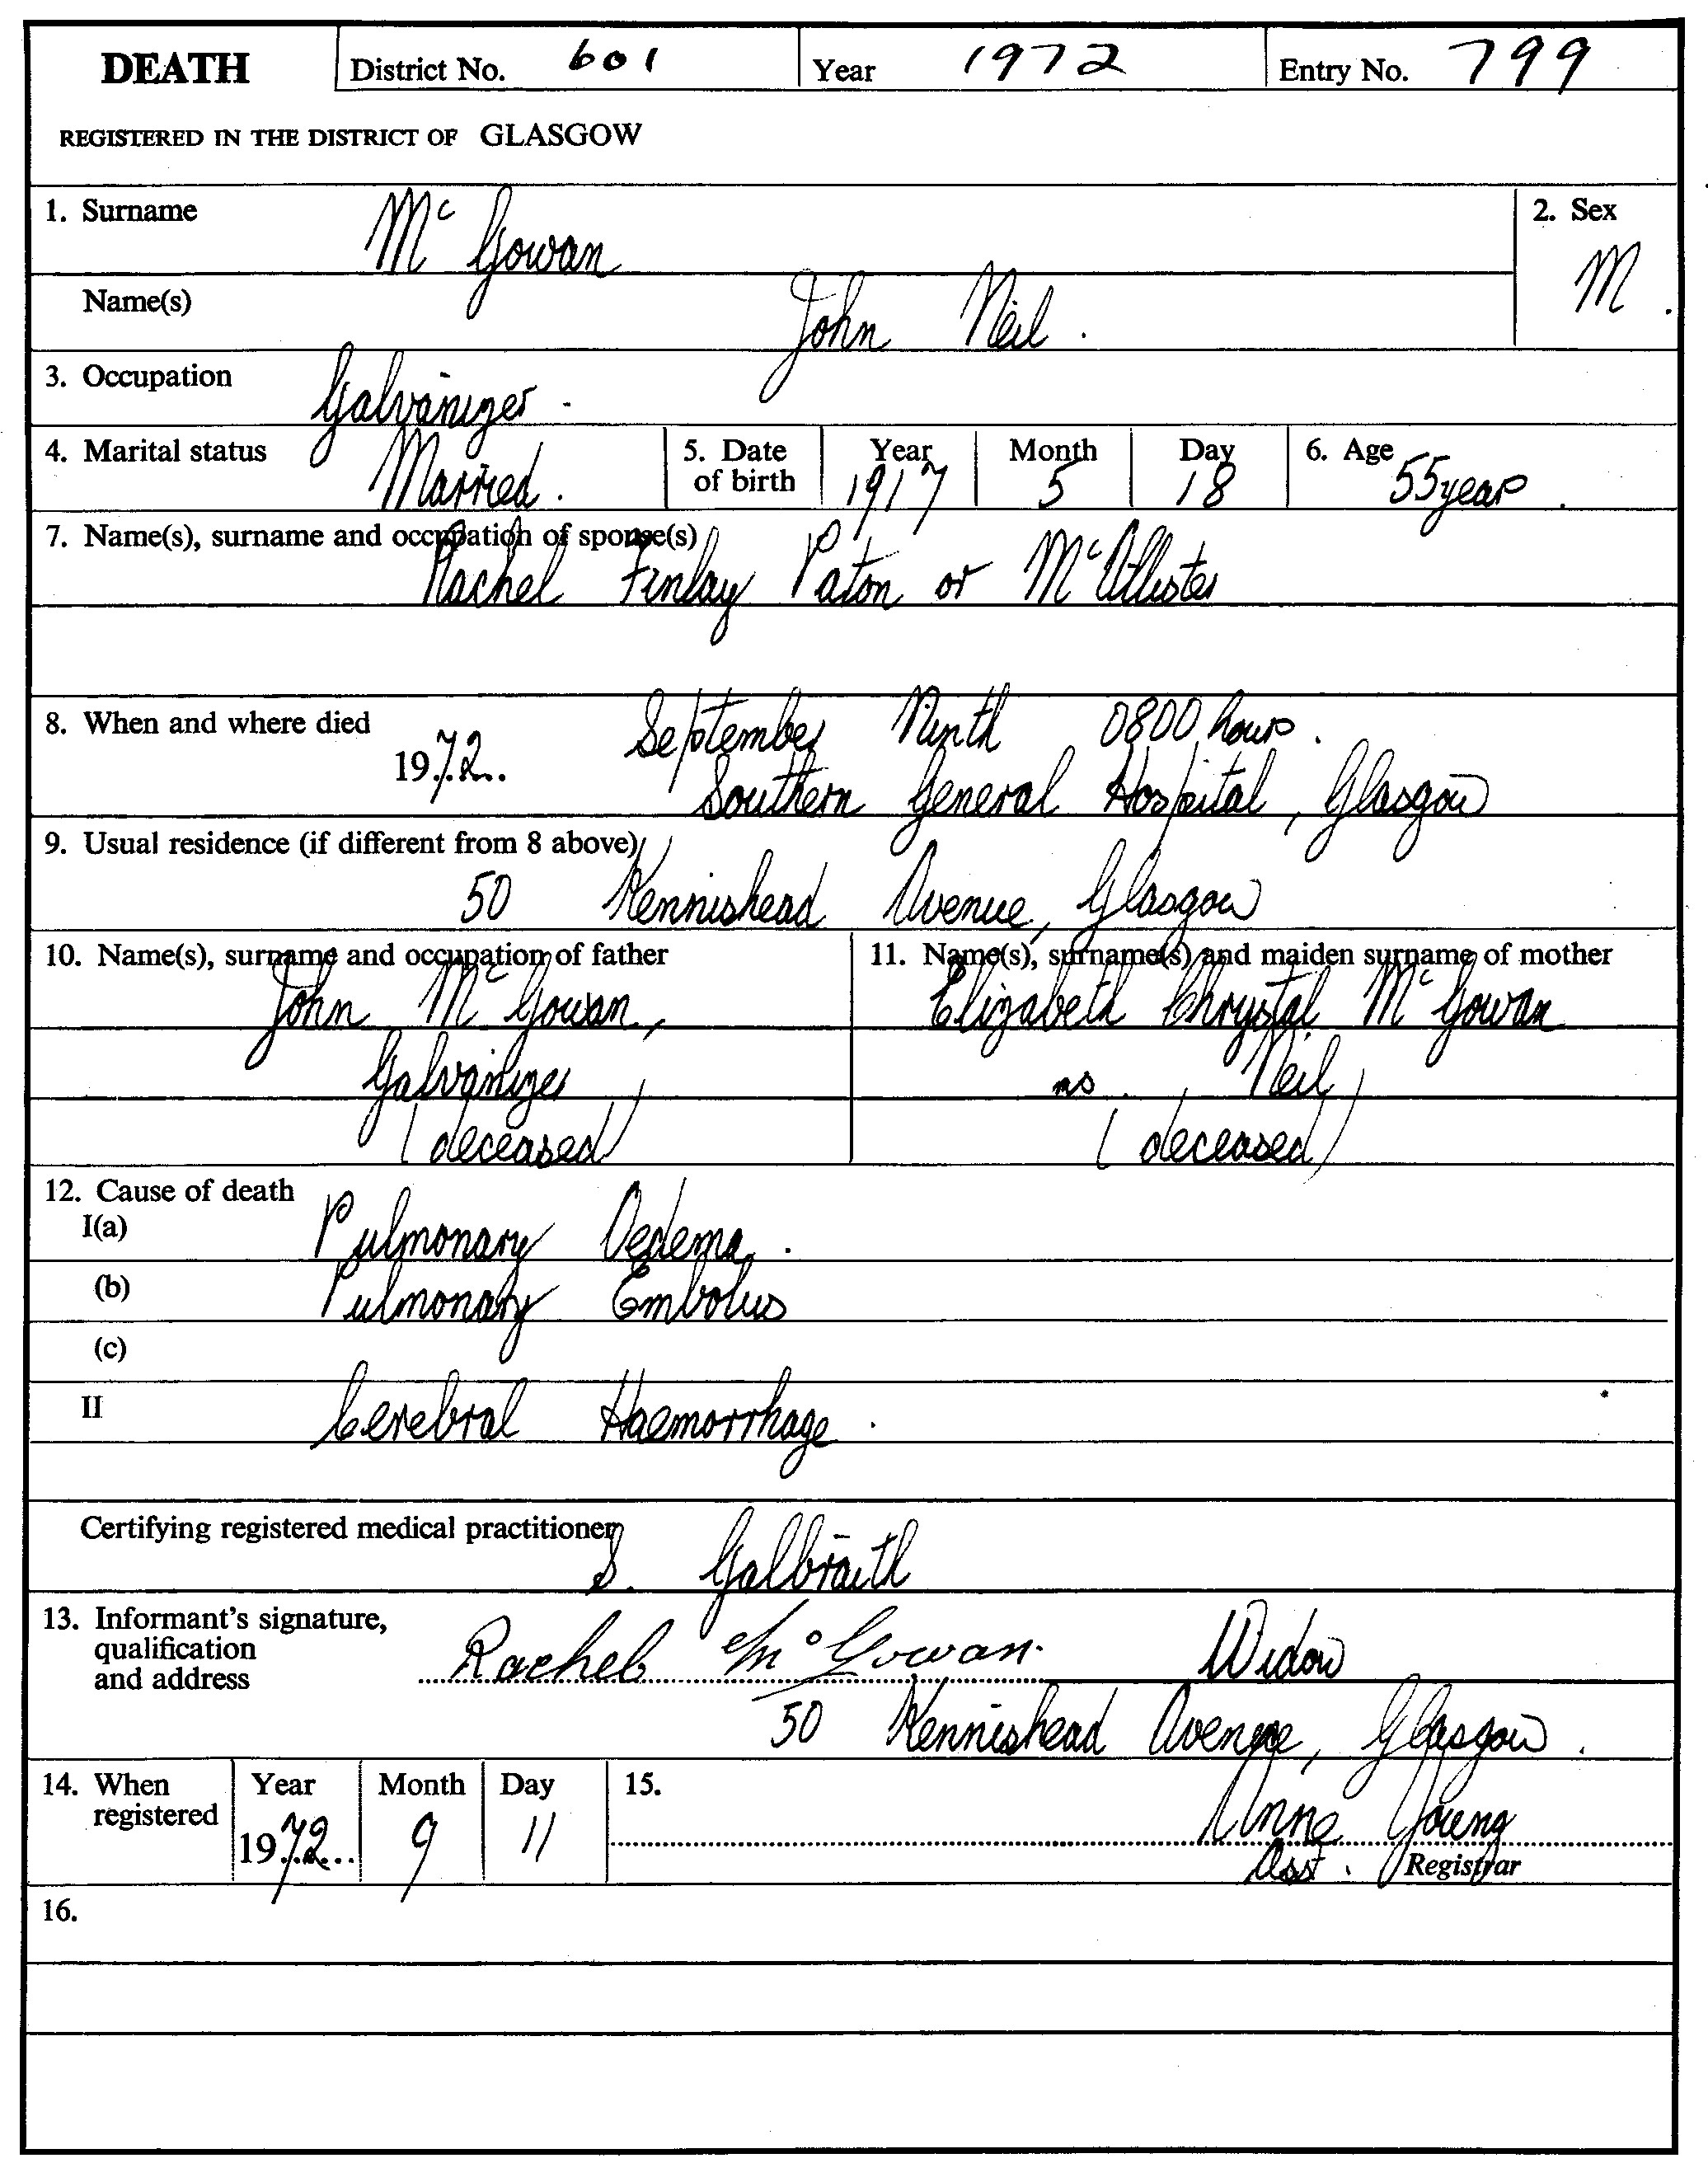 DEATH District No. 601 Year 1972 Entry No. 799
REGISTERED IN THE DISTRICT OF GLASGOW
1. Surname Mc Gowan 2. Sex M.
Name(s) John Neil.
3. Occupation Galvanizer.
4. Marital status Married. 5. Date of birth Year 1917 Month 5 Day 18 6. Age 55 years.
7. Name(s), surname and occupation of spouse(s)
Rachel Finlay Paton or McAllister
8. When and where died 1972.. September Ninth 0800 hours.
Southern General Hospital, Glasgow
9. Usual residence (if different from 8 above)
50 Kennishead Avenue, Glasgow
10. Name(s), surname and occupation of father
John Mc Gowan,
Galvanizer
(deceased)
11. Name(s), surname(s) and maiden surname of mother
Elizabeth Chrystal Mc Gowan
ms. Neil
(deceased)
12. Cause of death
I(a) Pulmonary Oedema.
(b) Pulmonary Embolus
(c)
II Cerebral Haemorrhage.
Certifying registered medical practitioner S. Galbraith
13. Informant's signature, qualification and address
Rachel McGowan. Widow
50 Kennishead Avenue, Glasgow.
14. When registered Year 1972... Month 9 Day 11
15. Anne Young
Asst. Registrar
16.